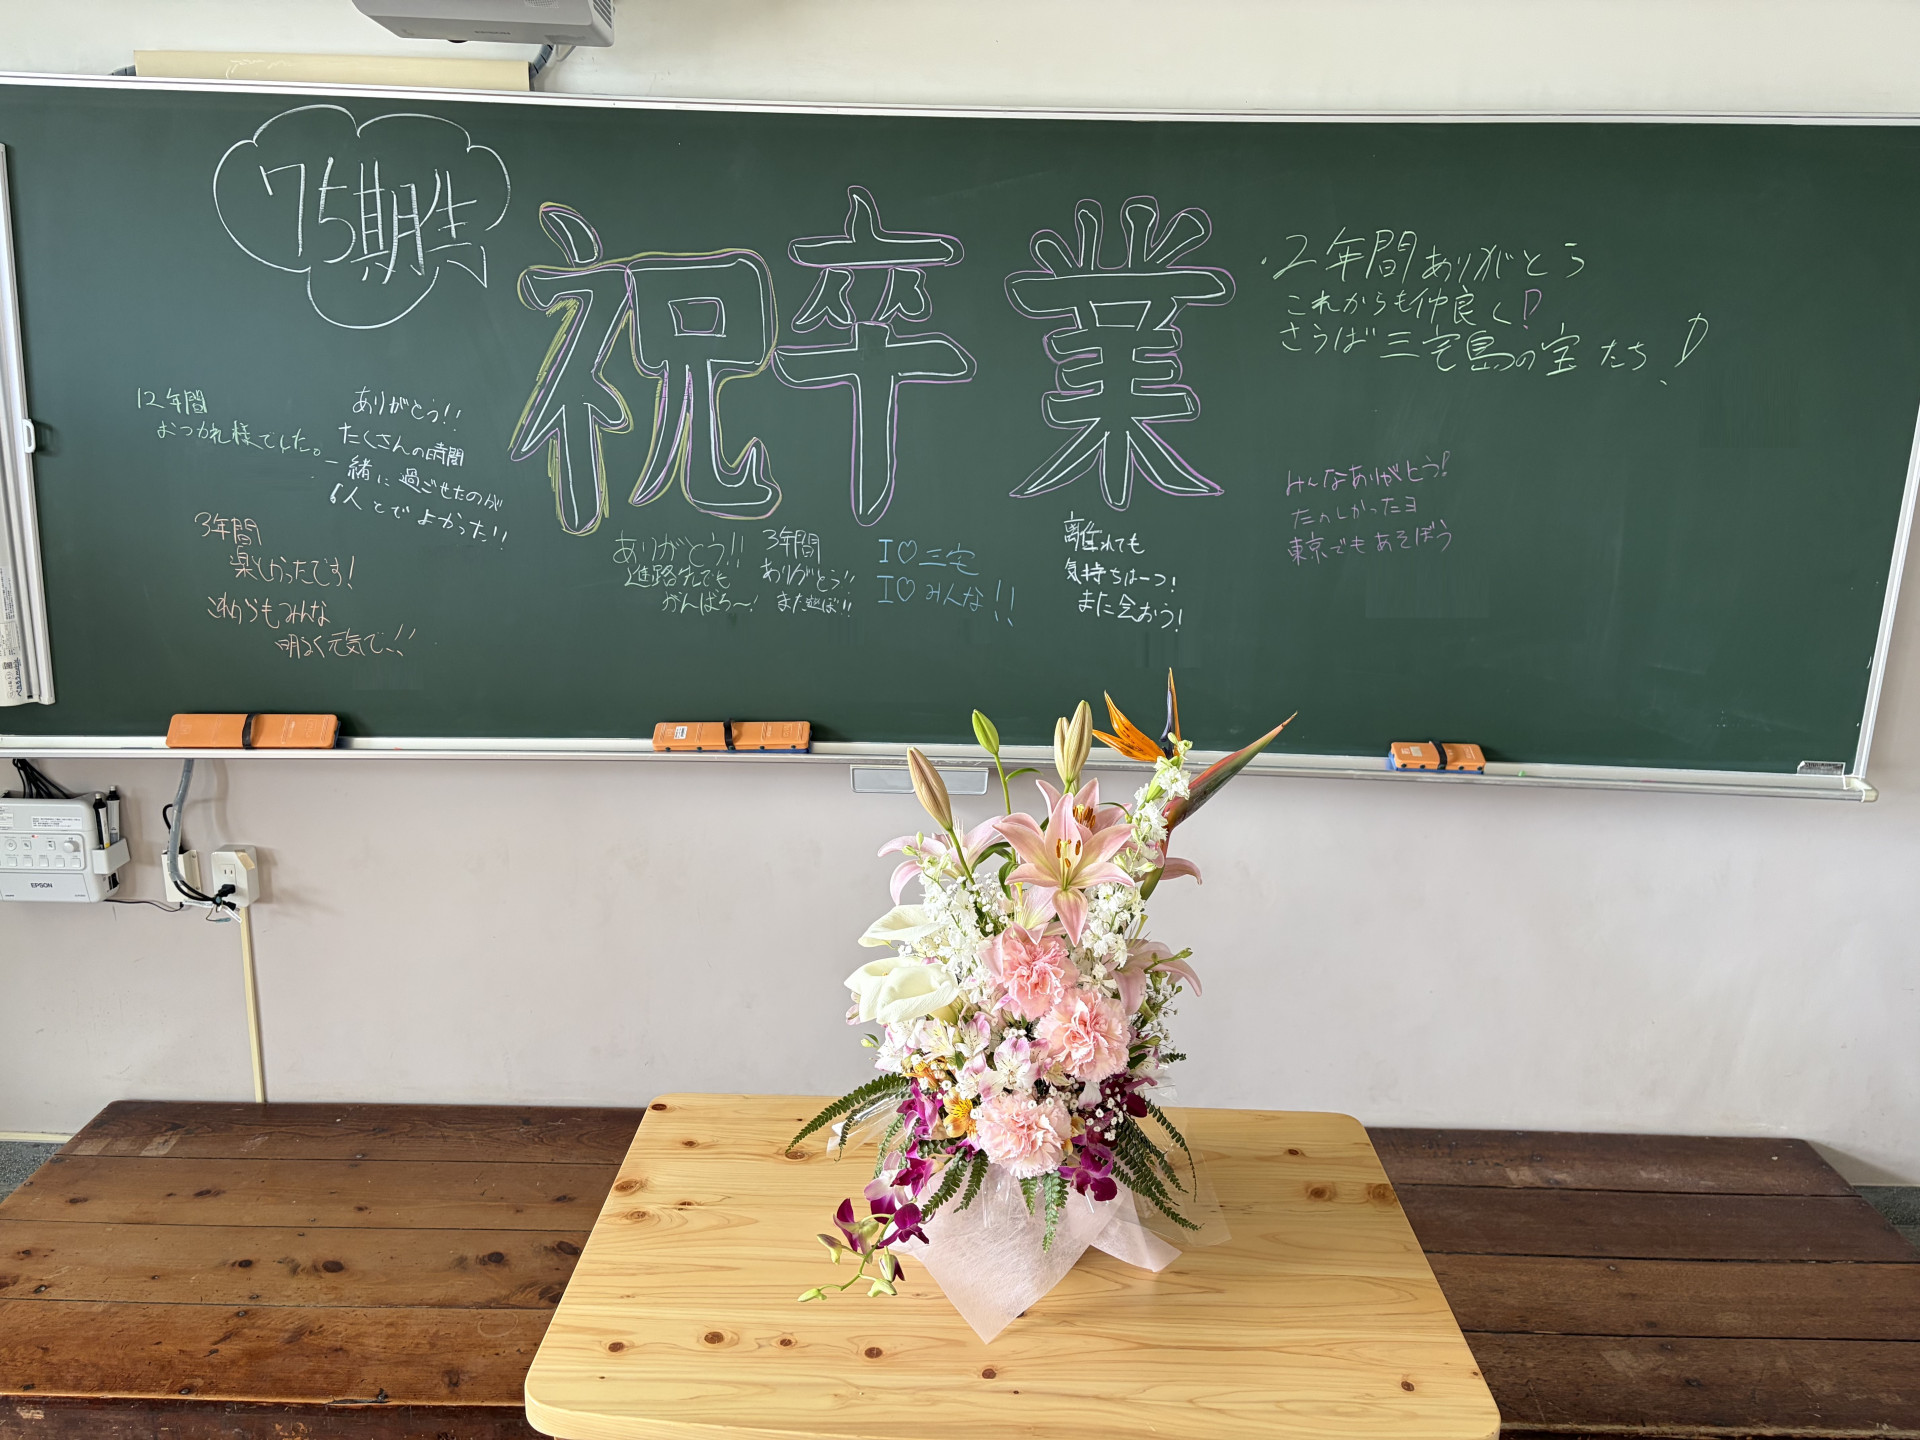 75期生
祝卒業
・2年間ありがとう
これからも仲良く!
さらば三宅島の宝たち!
12年間
おつかれ様でした。
ありがとう!!
たくさんの時間
一緒に過ごせたのが
6人とでよかった!!
3年間
楽しかったです!
これからもみんな
明るく元気で!!
ありがとう!!
進路先でも
がんばろ〜!
3年間
ありがとう!!
また遊ぼ!!
I♡三宅
I♡みんな!!
離れても
気持ちは一つ!
また会おう!
みんなありがとう!
たのしかったヨ
東京でもあそぼう
EPSON